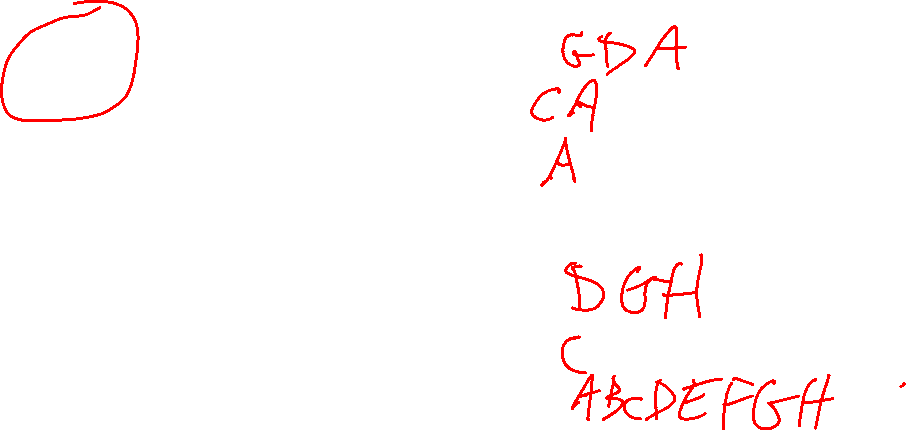 GDA
CA
A
DGH
C
ABCDEFGH